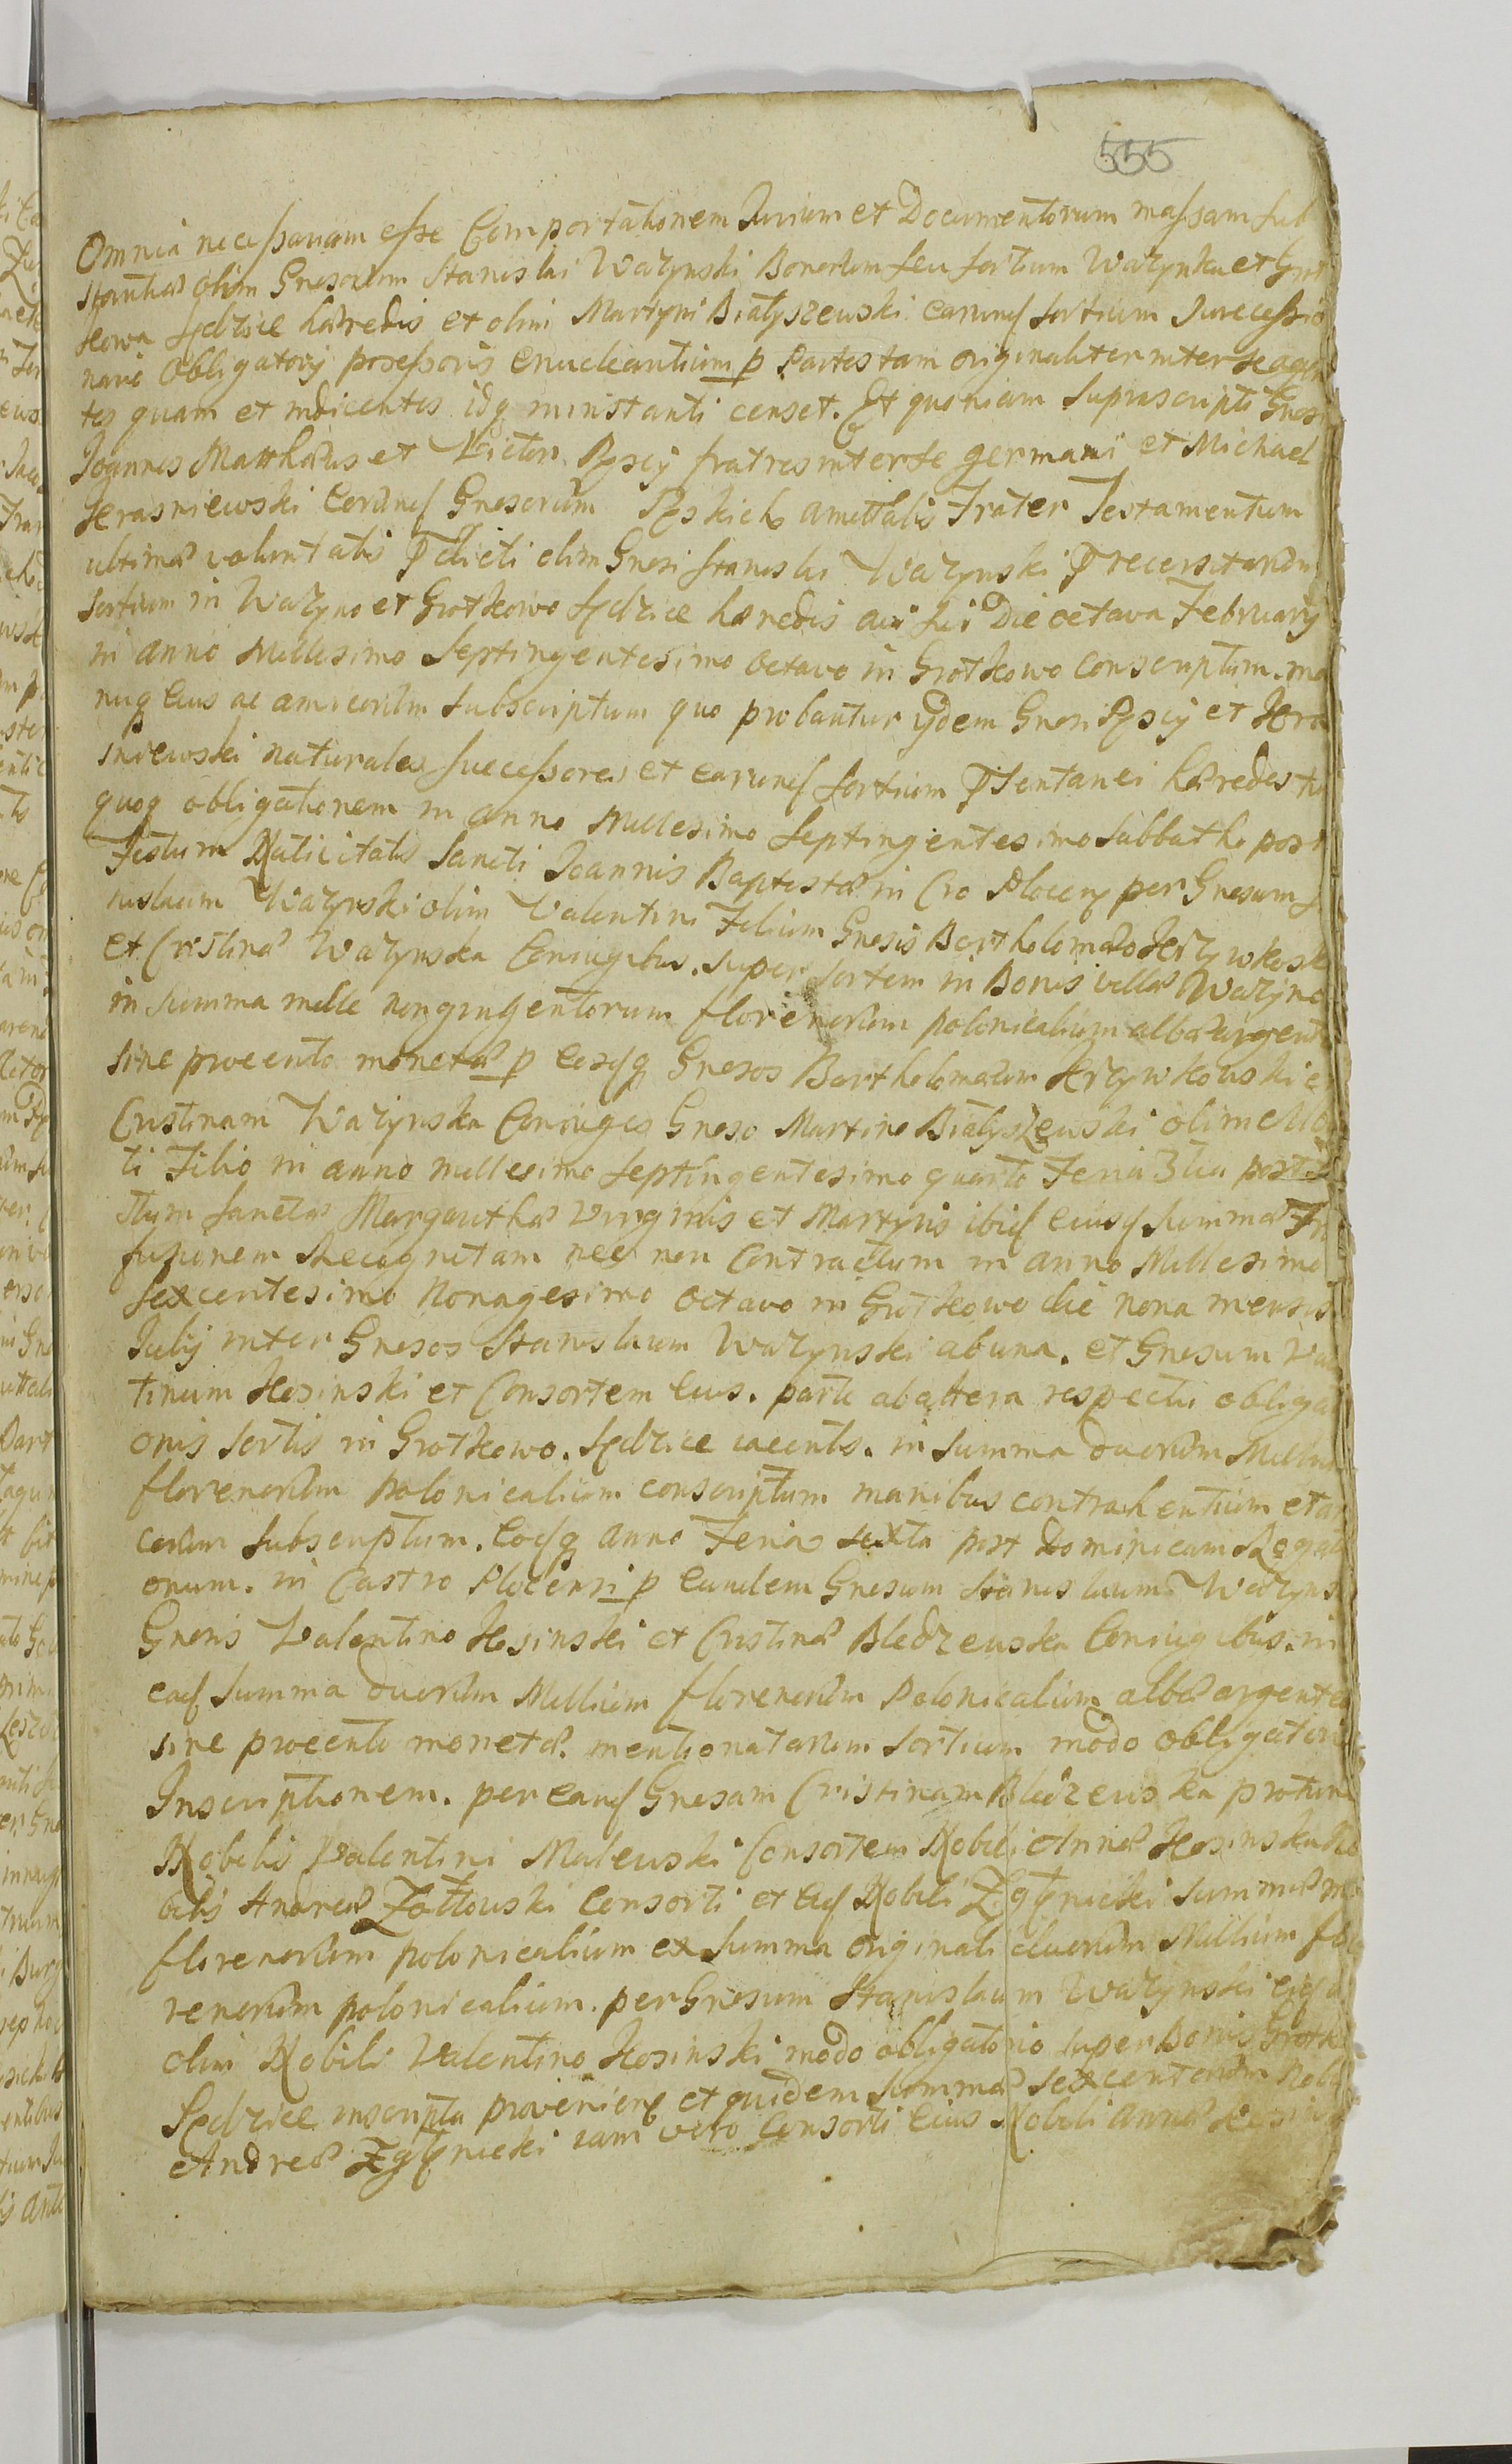 555
Omnia necessariam esse Comportationem Jurium et Documentorum massam sub
stantiæ olim Gnesorum Stanislai Wazynski Bonorum seu sortium Wazynko et Grot
kowa Sędzice hæredis et olim Martyni Białyszewski earund sortium Jurecessio
narii Obligatorij possessoris enucleantium p Partes tam originaliter inter se agen
tes quam et indicentes idq ministanti censet. Et quoniam Suprascripti Gnesi
Joannes Matthæus et Victor Pyscij fratres inter se germani et Michael
Krasniewski eorund Gnesorum Pyskich amittalis Frater Testamentum
ultimæ voluntatis Pdicti olim Gnesi Stanislai Wazynski Precensitarum
sortium in Wazyno et Grotkowo Sędzice hæredis avi sui Die octava February
in anno Millesimo Septingentesimo octavo in Grotkowo conscriptum. ma
nuq Eius ac amicorum subscriptum quo probantur ijdem Gnesi Pyscij et Kra
sniewski naturales successores et earund sortium Psentanei hæredes tu
quoq obligationem in anno Millesimo Septingentesimo Sabbatho post
Festum Nativitatis Sancti Joannis Baptistæ in Cro Plocen per Gnesum S
nislaum Wazynski olim Valentini Filium Gnesis Bartholomæo Krzywkosk
et Cristinæ Wazynska Coniugibus. super sortem in Bonis villæ Wazyno
in summa mille nongingentorum florenorum polonicalium albæ argent
sine procento monetæ p Eosdq Gnesos Bartholomæum Krzywkowski et
Cristinam Wazynska Coniuges Gneso Martino Białyszewski olim Mat
ti Filio in anno millesimo Septingentesimo quarto Feria 3tia post Fe
stum Sanctæ Margarithæ Virginis et Martyris ibid eiusd summæ Tr
fusionem Recognitam nec non Contractum in anno Millesimo
sexcentesimo Nonagesimo octavo in Grotkowo die nona mensis
Julij inter Gnesos Stanislaum Wazynski ab una. et Gnesum Va
tinum Kosinski et Consortem Eius. parte ab altera respectu obliga
onis sortis in Grotkowo. Sędzice iacentis. in summa duorum Millium
florenorum polonicalium conscriptum manibus contrahentium et am
corum subscriptum. Eodq anno Feria sexta post Dominicam Rogati
onum. in Castro Plocensi p Eundem Gnesum Stanislaum Wazyns
Gnesis Valentino Kosinski et Cristinæ Bledzewska Coniugibus. in
ead summa duorum Millium florenorum Polonicalium albæ argentea
sine procento monetæ. mentionatarum sortium modo obligatorio
Inscriptionem. per Eand Gnesam Cristinam Bledzewska protunc
Nobilis Valentini Malewski Consortem Nobili Annæ Kosinska No
bilis Andreæ Zołtowski Consorti et Eid Nobili Zgłynicki summæ m
florenorum polonicalium ex summa originali duorum Millium flo
renorum polonicalium. per Gnesum Stanislaum Wazynski eid
olim Nobili Valentino Kosinski modo obligatorio super Bonis Grotk
Sędzice inscripta provenien et quidem summæ sexcentorum Nobi
Andreæ Zgłynicki iam vero Consorti Eius Nobili Annæ Kosins